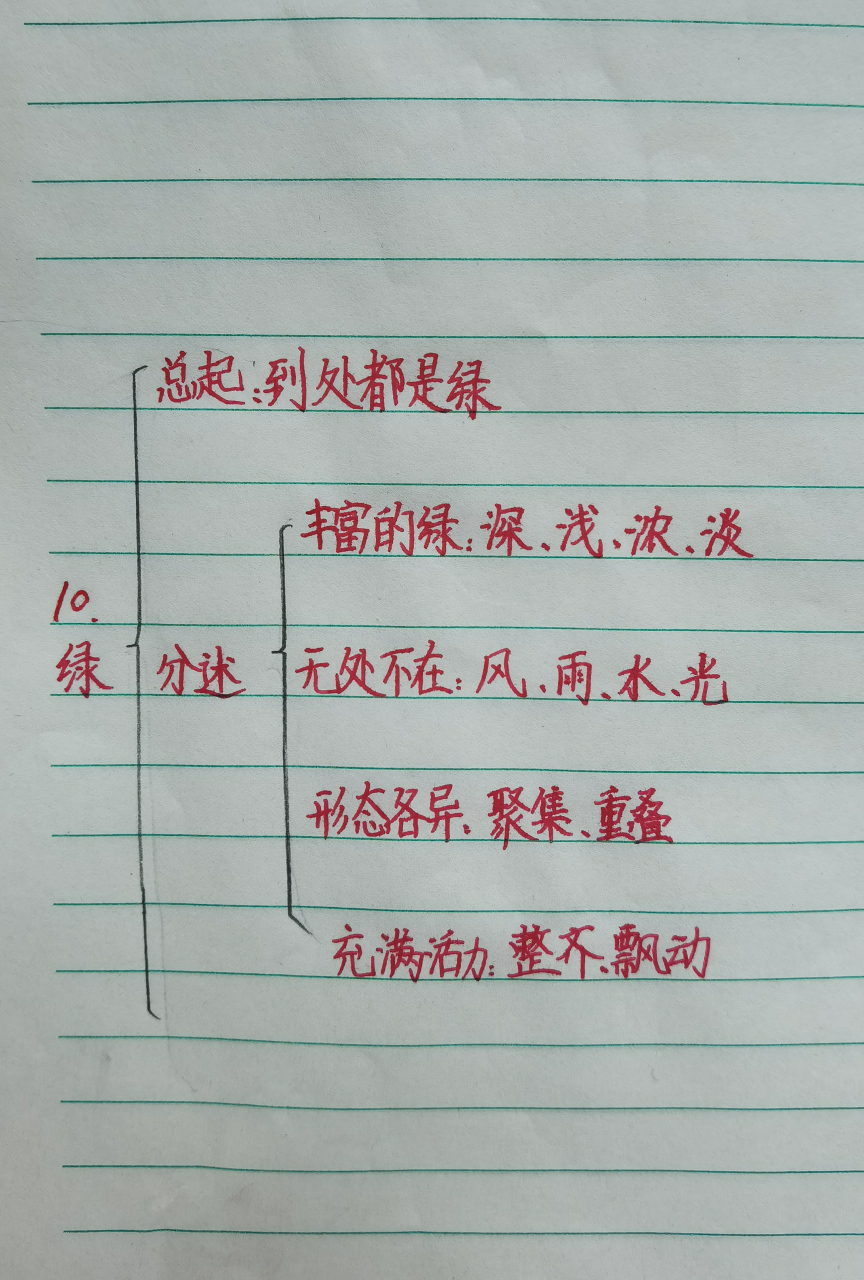 总起:到处都是绿
丰富的绿:深、浅、浓、淡
10.
绿
分述
无处不在:风、雨、水、光
形态各异:聚集、重叠
充满活力:整齐、飘动